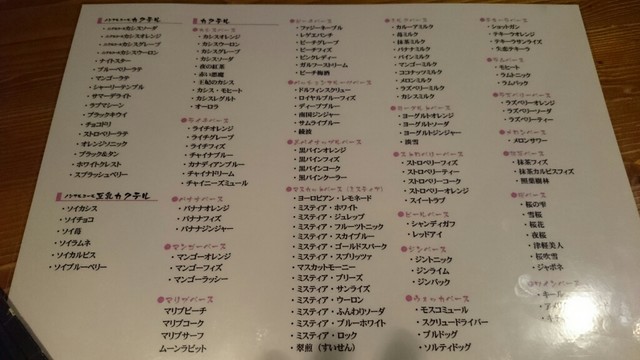 ノンアルコールカクテル
・ノンアルコールカシスソーダ
・ノンアルコールカシスオレンジ
・ノンアルコールカシスグレープ
・ノンアルコールカシスウーロン
・ナイトスター
・ブルーベリーラテ
・マンゴーラテ
・シャーリーテンプル
・サマーデライト
・ラブマシーン
・ブラックキウイ
・チョコドリ
・ストロベリーラテ
・オレンジソニック
・ブラック&タン
・ホワイトクレスト
・スプラッシュベリー
ノンアルコール豆乳カクテル
・ソイカシス
・ソイチョコ
・ソイ苺
・ソイラムネ
・ソイカルピス
・ソイブルーベリー
カクテル
●カシスベース
・カシスオレンジ
・カシスウーロン
・カシスグレープ
・カシスソーダ
・夜の紅茶
・赤い悪魔
・王妃のカシス
・カシス・モヒート
・カシスレグルト
・オーロラ
●ライチベース
・ライチオレンジ
・ライチグレープ
・ライチフィズ
・チャイナブルー
・カナディアンブルー
・チャイナドリーム
・チャイニーズミュール
●バナナベース
・バナナオレンジ
・バナナフィズ
・バナナジンジャー
●マンゴーベース
・マンゴーオレンジ
・マンゴーフィズ
・マンゴーラッシー
●マリブベース
マリブピーチ
マリブコーク
マリブサーフ
ムーンラビット
●ピーチベース
・ファジーネーブル
・レゲエパンチ
・ピーチグレープ
・ピーチフィズ
・ピンクレディー
・ガルフストリーム
・ピーチ梅酒
・ドルフィンスクリュー
・ロイヤルブルーフィズ
・ディープブルー
・南国ジンジャー
・サムライブルー
・綾波
・黒パインオレンジ
・黒パインフィズ
・黒パインコーク
・黒パインクーラー
●マスカットベース(ミスティア)
・ヨーロピアン・レモネード
・ミスティア・ホワイト
・ミスティア・ジュレップ
・ミスティア・フルーツトニック
・ミスティア・スカイブルー
・ミスティア・ゴールドスパーク
・ミスティア・スプリッツァ
・マスカットモーニー
・ミスティア・ブリーズ
・ミスティア・サンライズ
・ミスティア・ウーロン
・ミスティア・ふんわりソーダ
・ミスティア・ブルーホワイト
・ミスティア・ロック
・翠煎(すいせん)
●ミルクベース
・カルーアミルク
・苺ミルク
・抹茶ミルク
・バナナミルク
・パインミルク
・マンゴーミルク
・ココナッツミルク
・メロンミルク
・ラズベリーミルク
・カシスミルク
●ヨーグルトベース
・ヨーグルトオレンジ
・ヨーグルトソーダ
・ヨーグルトジンジャー
・淡雪
●ストロベリーベース
・ストロベリーフィズ
・ストロベリーティー
・ストロベリーコーク
・ストロベリーオレンジ
・スイートラブ
●ビールベース
・シャンディガフ
・レッドアイ
●ジンベース
・ジントニック
・ジンライム
・ジンバック
●ウォッカベース
・モスコミュール
・スクリュードライバー
・ブルドッグ
・ソルティドッグ
●テキーラベース
・ショットガン
・テキーラオレンジ
・テキーラサンライズ
・生意テキーラ
●ラムベース
・モヒート
・ラムトニック
・ラムバック
●ラズベリーベース
・ラズベリーオレンジ
・ラズベリーソーダ
・ラズベリーティー
●メロンベース
・メロンサワー
●抹茶ベース
・抹茶フィズ
・抹茶カルピスフィズ
・照葉樹林
●桜ベース
・桜の雫
・雪桜
・桜花
・夜桜
・津軽美人
・桜吹雪
・ジャポネ
●ワインベース
・キール